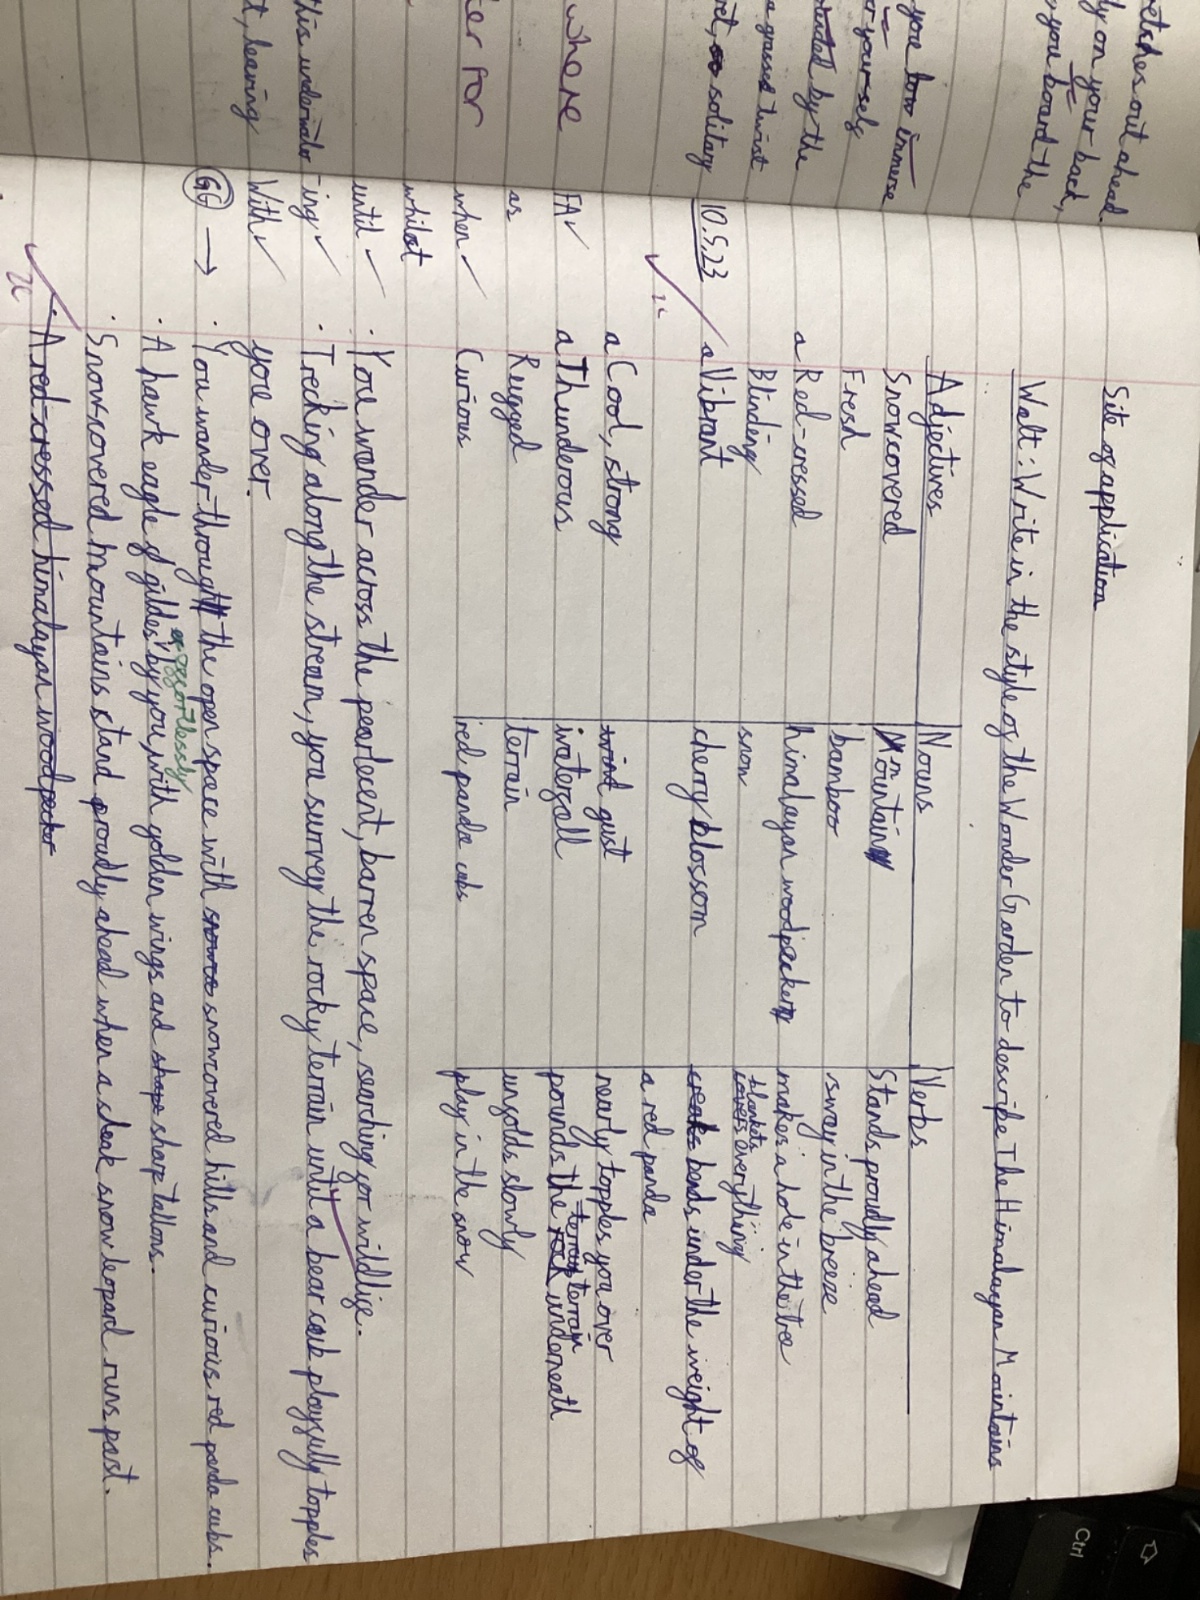 etches out ahead.
ly on your back,
you board the
you low immerse
r yourself
by the
a grasses twist
ret, so solitary
where
er for
this underwate
t, leaving
Site of application
Walt: Write in the style of the Wonder Garden to describe The Himalayan Mountains
Adjectives Nouns Verbs
Snowcovered Mountain Stands proudly ahead
Fresh bamboo sway in the breeze
a Red-cressed himalayan woodpecker makes a hole in the tree
Blinding snow blankets covers everything
10.5.23 a Vibrant cherry blossom creaks bends under the weight of
a red panda
a Cool, strong wind gust nearly topples you over
FA✓ a Thunderous waterfall pounds the rock terrain underneath
as Rugged terrain unfolds slowly
when ✓ Curious red panda cubs play in the snow
whilst
until ✓ · You wander across the pearlecent, barren space, searching for wildlife.
-ing ✓ · Trecking along the stream, you survey the rocky terrain until a bear cub playfully topples
With ✓ you over.
GG → · You wander through the open space with snowco snowcovered hills and curious red panda cubs.
effortlessly
· A hawk eagle gildes by you, with golden wings and shape sharp tallons.
· Snow-covered mountains stand proudly ahead when a sleak snow leopard runs past.
· A red-cressed himalayan woodpecker
Ctrl